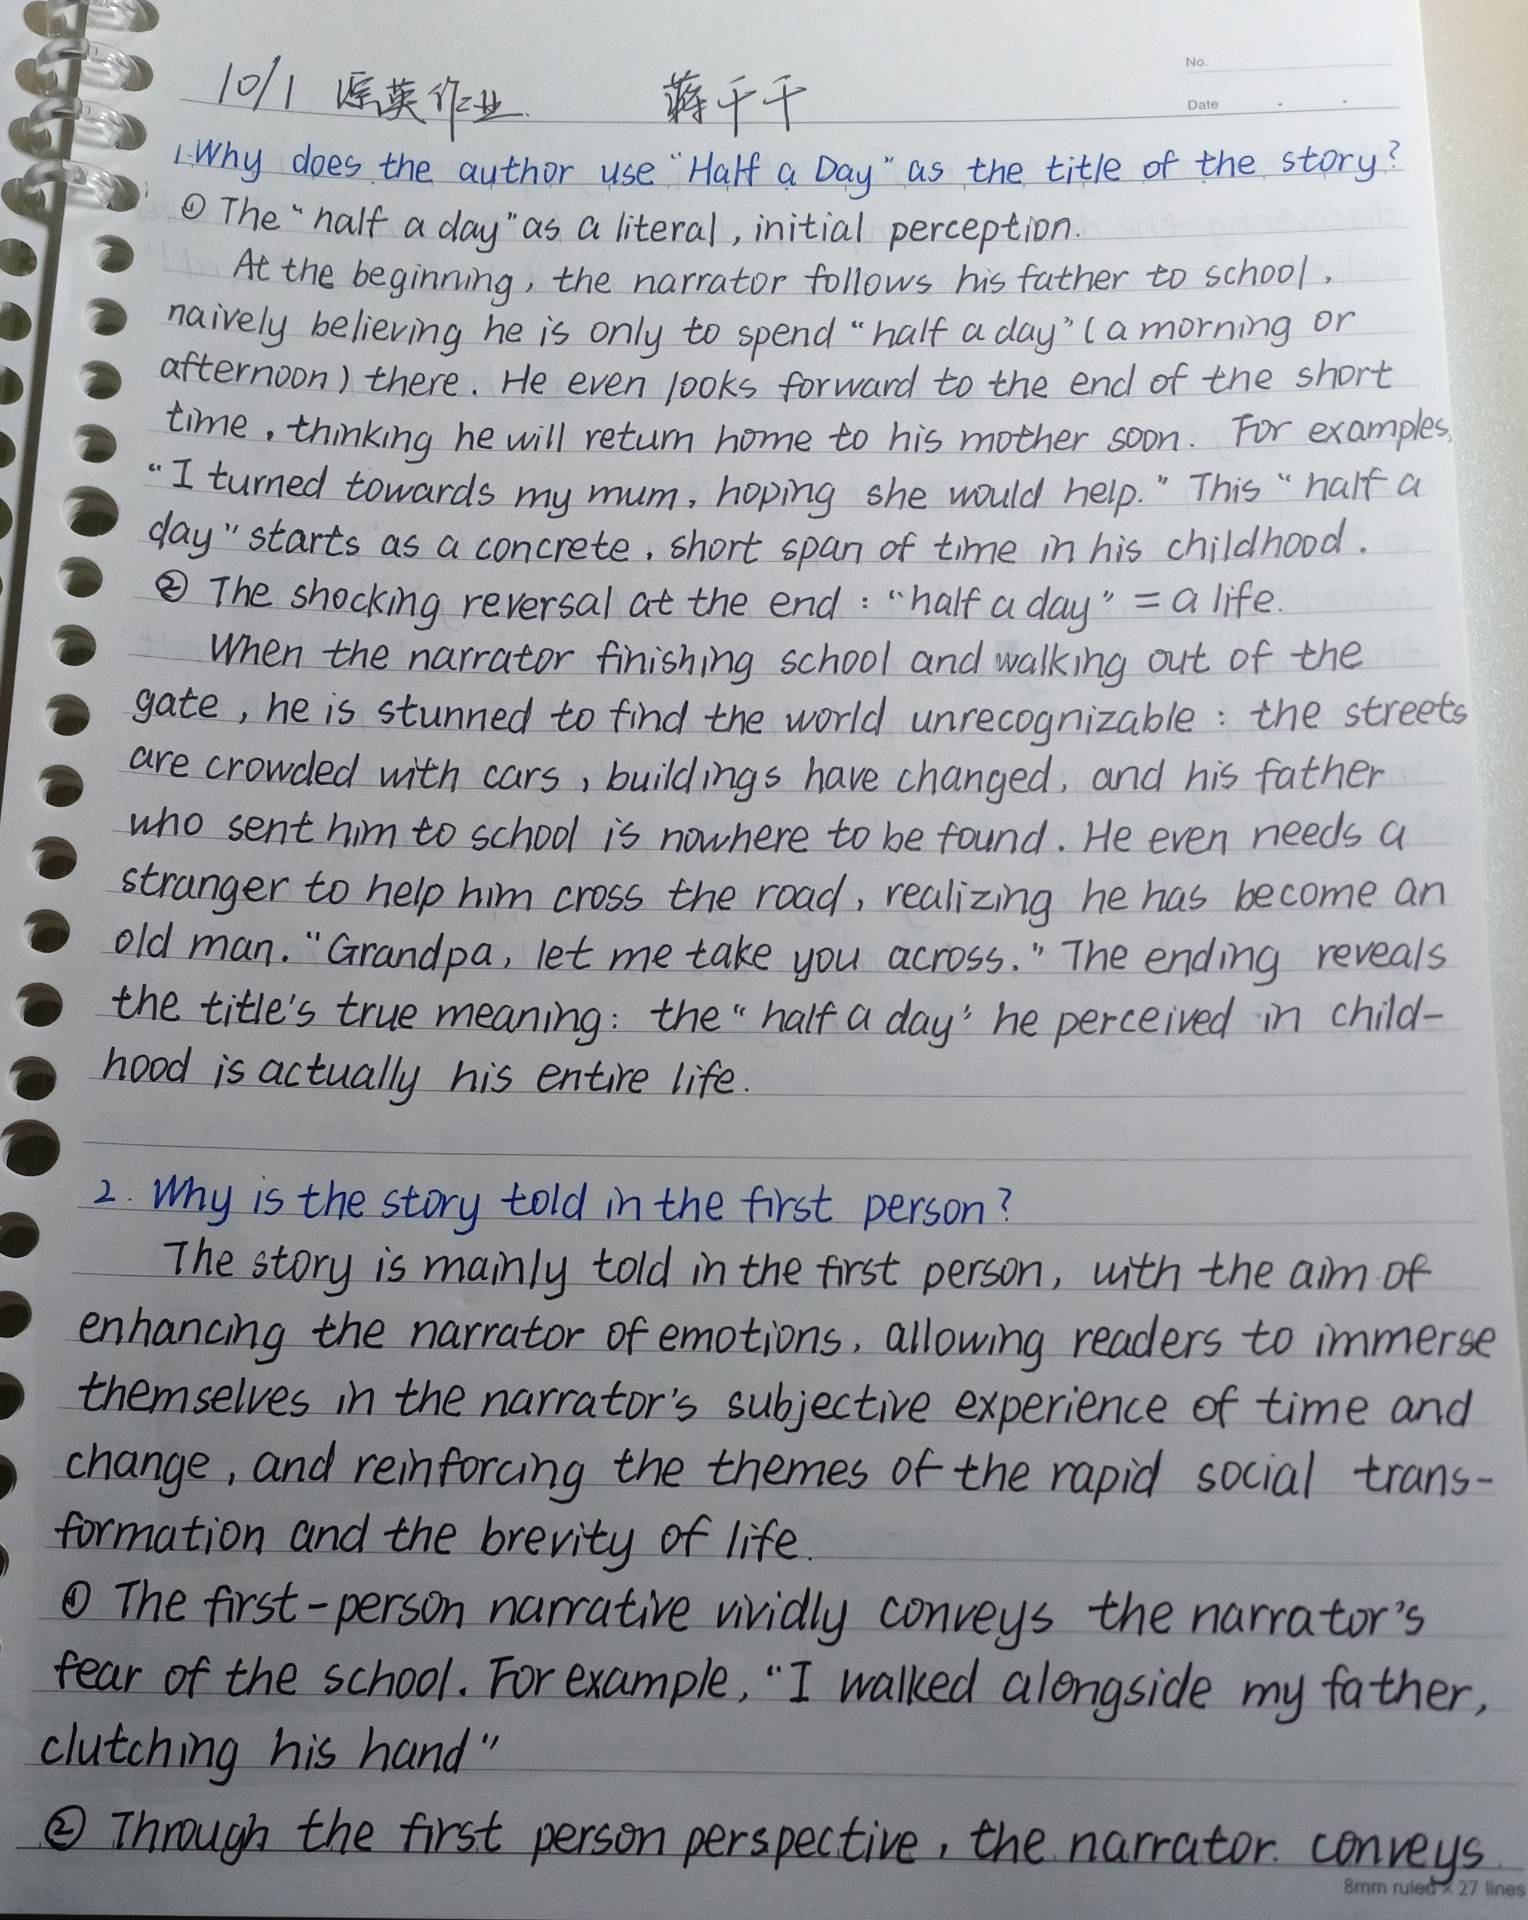 No.
10/1 综英作业 蒋千千
Date
1. Why does the author use "Half a Day" as the title of the story?
① The "half a day" as a literal, initial perception.
At the beginning, the narrator follows his father to school,
naively believing he is only to spend "half a day" (a morning or
afternoon) there. He even looks forward to the end of the short
time, thinking he will return home to his mother soon. For examples,
"I turned towards my mum, hoping she would help." This "half a
day" starts as a concrete, short span of time in his childhood.
② The shocking reversal at the end: "half a day" = a life.
When the narrator finishing school and walking out of the
gate, he is stunned to find the world unrecognizable: the streets
are crowded with cars, buildings have changed, and his father
who sent him to school is nowhere to be found. He even needs a
stranger to help him cross the road, realizing he has become an
old man. "Grandpa, let me take you across." The ending reveals
the title's true meaning: the "half a day" he perceived in child-
hood is actually his entire life.
2. Why is the story told in the first person?
The story is mainly told in the first person, with the aim of
enhancing the narrator of emotions, allowing readers to immerse
themselves in the narrator's subjective experience of time and
change, and reinforcing the themes of the rapid social trans-
formation and the brevity of life.
① The first-person narrative vividly conveys the narrator's
fear of the school. For example, "I walked alongside my father,
clutching his hand"
② Through the first person perspective, the narrator conveys
8mm ruled × 27 lines